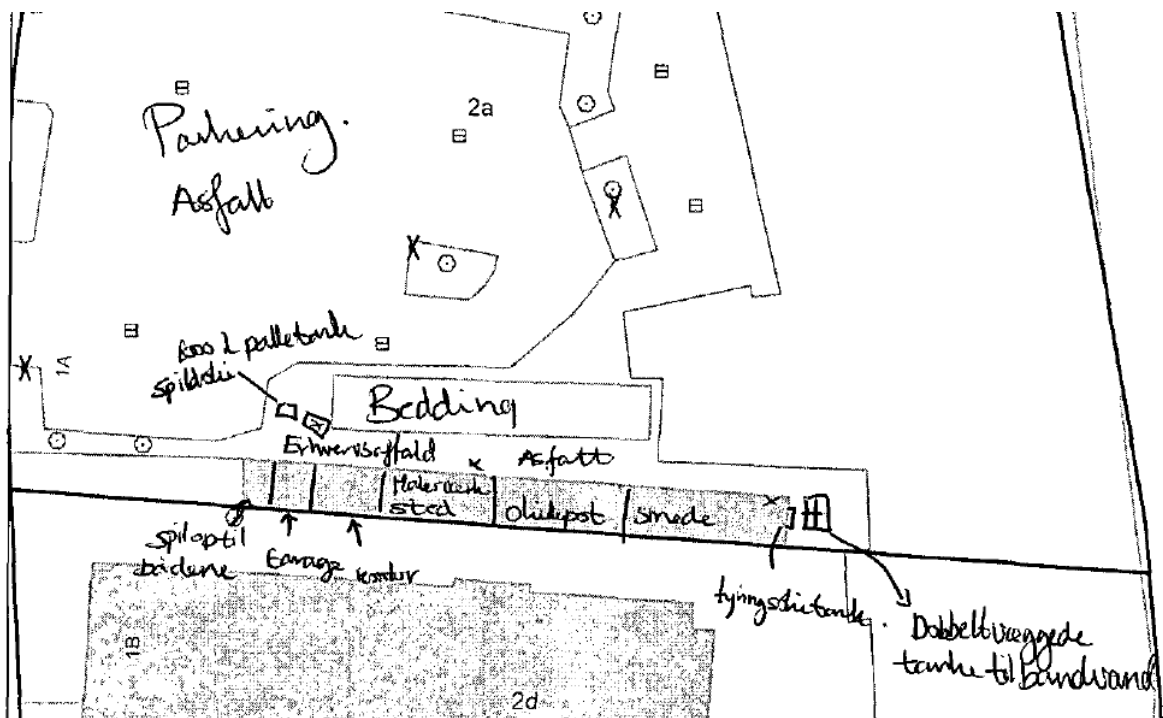 2a
Parkering.
Asfalt
1A
palletank
spildolie
Bedding
Erhvervsaffald
Asfalt
Malerværk
sted
smede
spil op til
bådene
Garage
kontor
fyringsolietank.
Dobbeltvæggede
tanke til bundvand
1B
2d